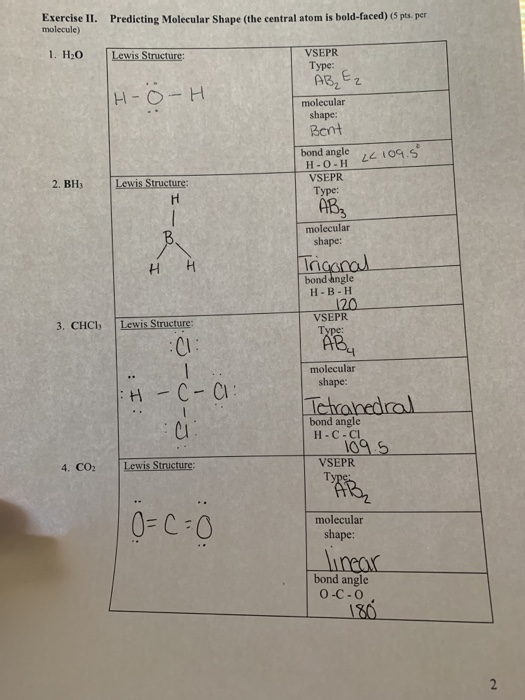 Exercise II. Predicting Molecular Shape (the central atom is bold-faced) (5 pts. per
molecule)
1. H₂O
Lewis Structure:
H-O-H
VSEPR
Type:
AB₂E₂
molecular
shape:
Bent
bond angle << 109.5°
H-O-H
2. BH₃
Lewis Structure:
H
|
B
H H
VSEPR
Type:
AB₃
molecular
shape:
Trigonal
bond angle
H-B-H
120
3. CHCl₃
Lewis Structure:
:Cl:
|
:H - C - Cl:
|
:Cl:
VSEPR
Type:
AB₄
molecular
shape:
Tetrahedral
bond angle
H-C-Cl
109.5
4. CO₂
Lewis Structure:
O=C=O
VSEPR
Type:
AB₂
molecular
shape:
linear
bond angle
O-C-O
180°
2